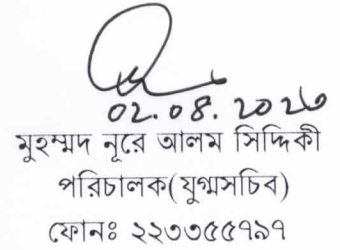 ০২.০৪.২০২৬
মুহম্মদ নূরে আলম সিদ্দিকী
পরিচালক(যুগ্মসচিব)
ফোনঃ ২২৩৩৫৫৭৯৭